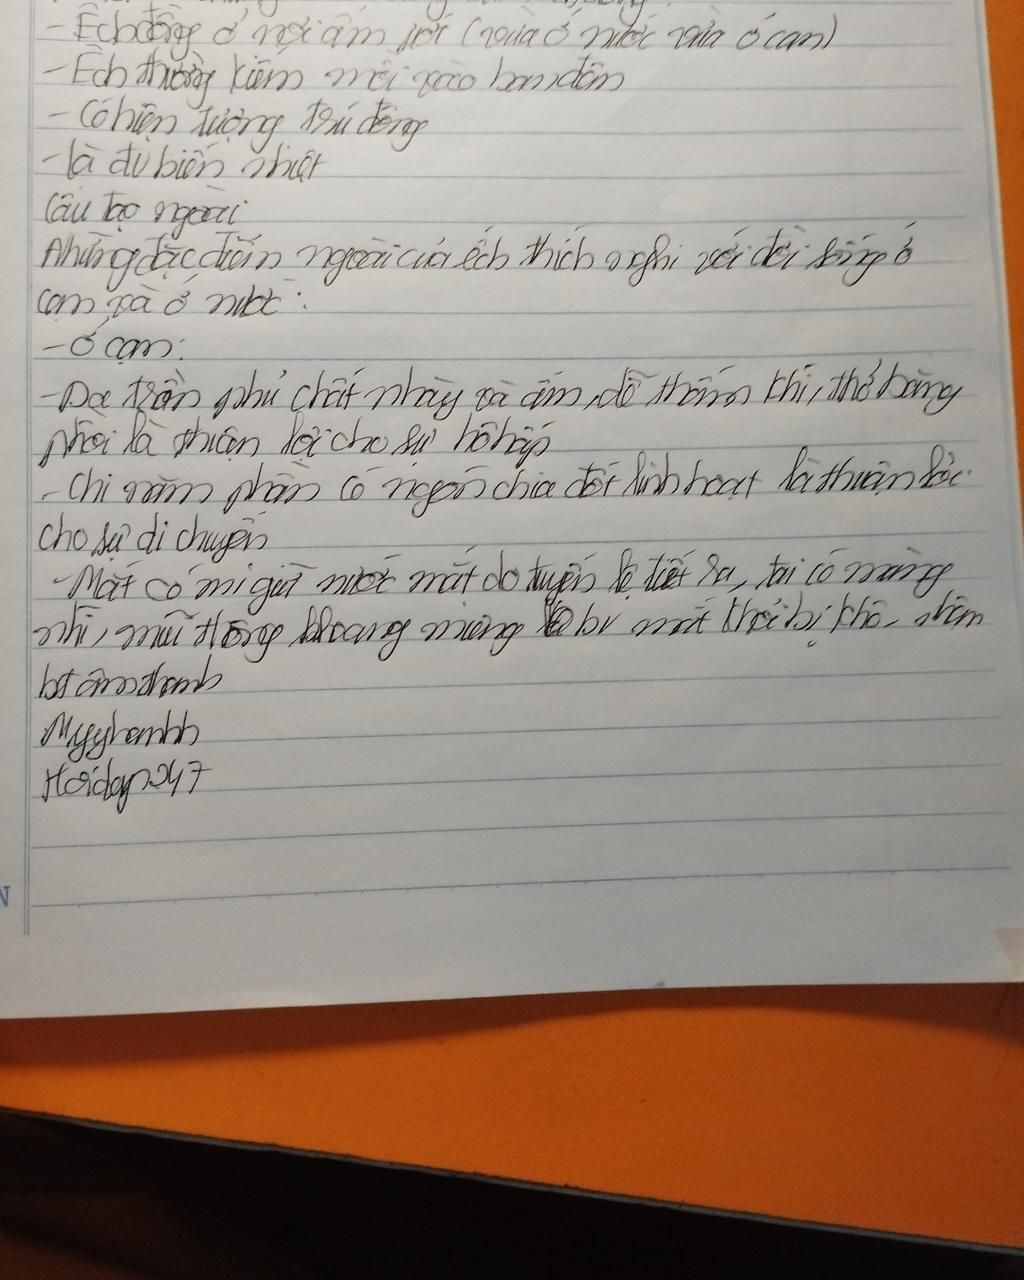 - Ếch đồng ở nơi ẩm ướt (vừa ở nước vừa ở cạn)
- Ếch thường kiếm mồi vào ban đêm
- Có hiện tượng trú đông
- là đv biến nhiệt
Cấu tạo ngoài
Những đặc điểm ngoài của ếch thích nghi với đời sống ở
cạn và ở nước:
- Ở cạn:
- Da trần phủ chất nhày và ẩm, dễ thấm khí, thở bằng
phổi là thuận lợi cho sự hô hấp
- Chi năm phần có ngón chia đốt linh hoạt là thuận lợi
cho sự di chuyển
- Mắt có mi giữ nước mắt do tuyến lệ tiết ra, tai có màng
nhĩ, mũi thông khoang miệng bv mắt khỏi bị khô, nhận
bt âm thanh
Myyhanhh
Hoidap247
N